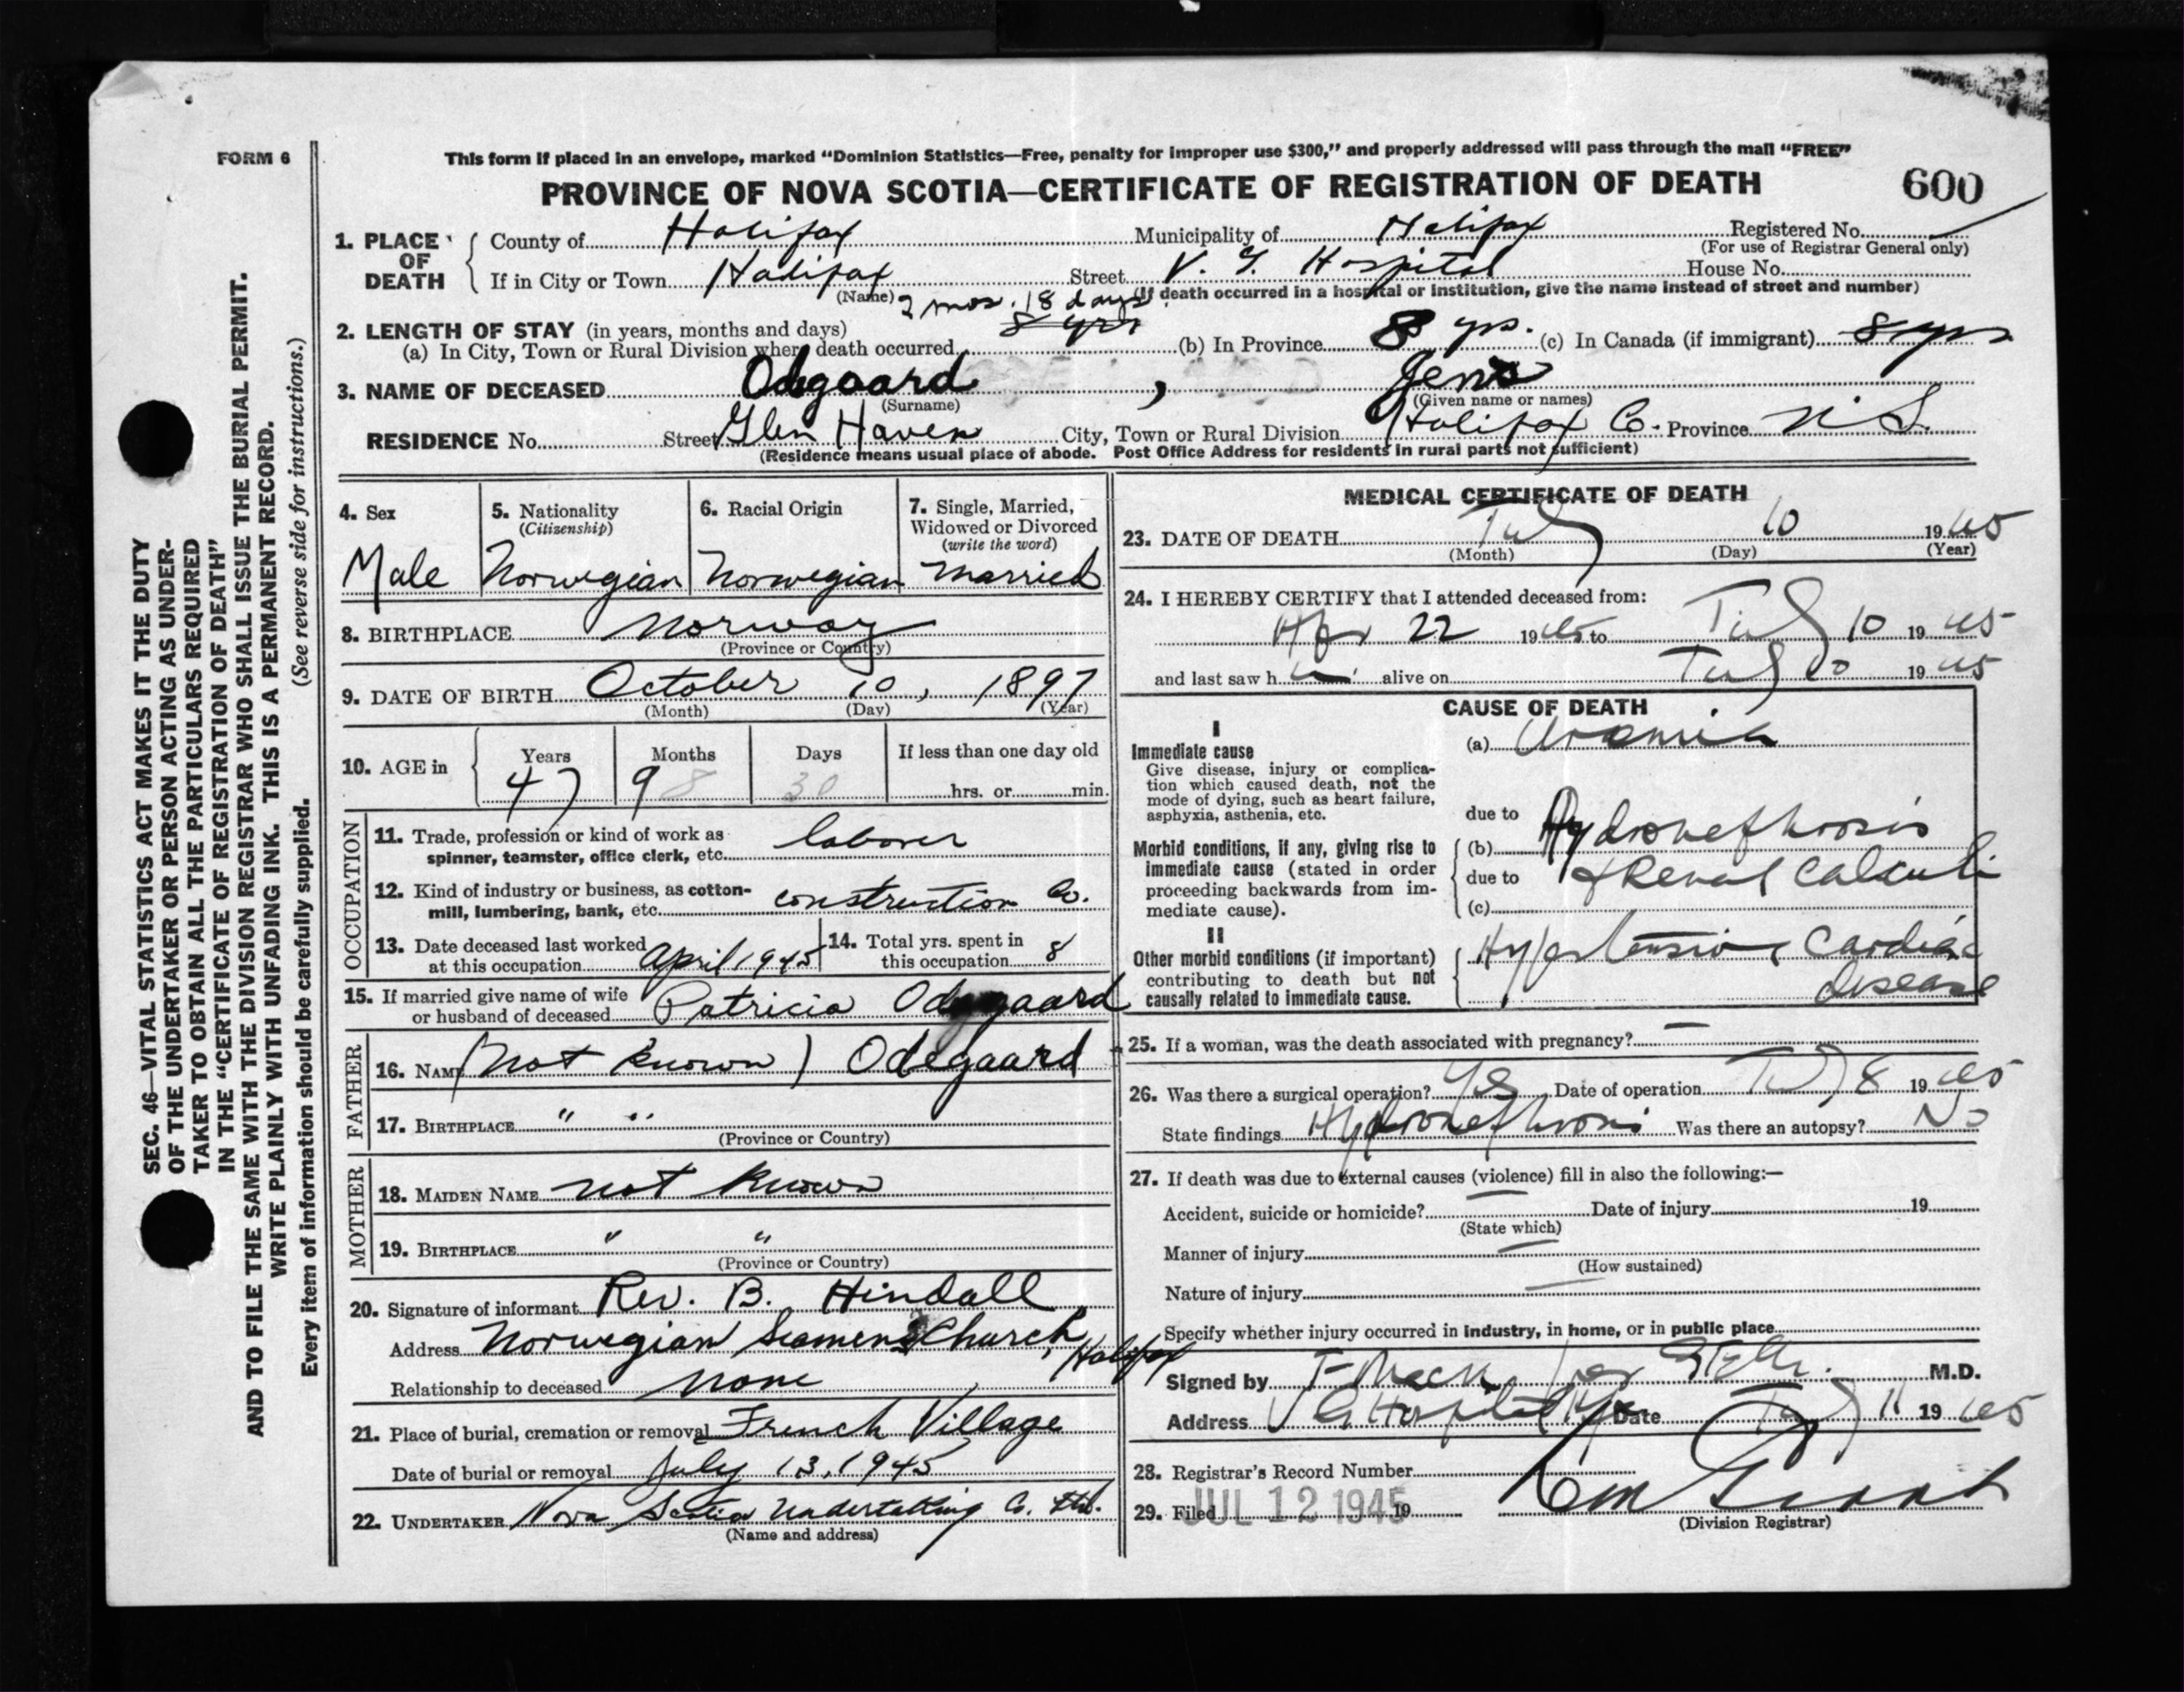 FORM 6
This form if placed in an envelope, marked “Dominion Statistics—Free, penalty for improper use $300,” and properly addressed will pass through the mail “FREE”
PROVINCE OF NOVA SCOTIA—CERTIFICATE OF REGISTRATION OF DEATH
600
1. PLACE OF DEATH
County of Halifax Municipality of Halifax Registered No.
(For use of Registrar General only)
If in City or Town Halifax Street V. G. Hospital House No.
(Name) (If death occurred in a hospital or institution, give the name instead of street and number)
2 mos. 18 days
2. LENGTH OF STAY (in years, months and days)
(a) In City, Town or Rural Division where death occurred 8 yrs (b) In Province 8 yrs. (c) In Canada (if immigrant) 8 yrs
3. NAME OF DECEASED Odegaard , Jens
(Surname) (Given name or names)
RESIDENCE No. Street Glen Haven City, Town or Rural Division Halifax Co. Province N. S.
(Residence means usual place of abode. Post Office Address for residents in rural parts not sufficient)
4. Sex
Male
5. Nationality
(Citizenship)
Norwegian
6. Racial Origin
Norwegian
7. Single, Married,
Widowed or Divorced
(write the word)
Married
8. BIRTHPLACE Norway
(Province or Country)
9. DATE OF BIRTH October 10, 1897
(Month) (Day) (Year)
10. AGE in
Years Months Days If less than one day old
47 9 8 30 hrs. or min.
OCCUPATION
11. Trade, profession or kind of work as
spinner, teamster, office clerk, etc. laborer
12. Kind of industry or business, as cotton-
mill, lumbering, bank, etc. construction Co.
13. Date deceased last worked
at this occupation April 1945
14. Total yrs. spent in
this occupation 8
15. If married give name of wife
or husband of deceased Patricia Odegaard
FATHER
16. NAME (not known) Odegaard
17. BIRTHPLACE " "
(Province or Country)
MOTHER
18. MAIDEN NAME not known
19. BIRTHPLACE " "
(Province or Country)
20. Signature of informant Rev. B. Hindall
Address Norwegian Seamens Church, Halifax
Relationship to deceased none
21. Place of burial, cremation or removal French Village
Date of burial or removal July 13, 1945
22. UNDERTAKER Nova Scotia Undertaking Co. Ltd.
(Name and address)
MEDICAL CERTIFICATE OF DEATH
23. DATE OF DEATH July 10 1945
(Month) (Day) (Year)
24. I HEREBY CERTIFY that I attended deceased from:
Apr 22 1945 to July 10 1945
and last saw h im alive on July 10 1945
CAUSE OF DEATH
I
Immediate cause
Give disease, injury or complica-
tion which caused death, not the
mode of dying, such as heart failure,
asphyxia, asthenia, etc.
(a) Uraemia
due to
Morbid conditions, if any, giving rise to
immediate cause (stated in order
proceeding backwards from im-
mediate cause).
(b) Hydronephrosis
due to & Renal Calculi
(c)
II
Other morbid conditions (if important)
contributing to death but not
causally related to immediate cause.
Hypertensive Cardiac
disease
25. If a woman, was the death associated with pregnancy? —
26. Was there a surgical operation? Yes Date of operation July 8 1945
State findings Hydronephrosis Was there an autopsy? No
27. If death was due to external causes (violence) fill in also the following:—
Accident, suicide or homicide? — Date of injury 19
(State which)
Manner of injury —
(How sustained)
Nature of injury —
Specify whether injury occurred in industry, in home, or in public place
Signed by M.D.
Address V G Hospital Hfx Date July 11 1945
28. Registrar's Record Number
29. Filed JUL 12 1945 19
(Division Registrar)
SEC. 46—VITAL STATISTICS ACT MAKES IT THE DUTY
OF THE UNDERTAKER OR PERSON ACTING AS UNDER-
TAKER TO OBTAIN ALL THE PARTICULARS REQUIRED
IN THE “CERTIFICATE OF REGISTRATION OF DEATH”
AND TO FILE THE SAME WITH THE DIVISION REGISTRAR WHO SHALL ISSUE THE BURIAL PERMIT.
WRITE PLAINLY WITH UNFADING INK. THIS IS A PERMANENT RECORD.
Every item of information should be carefully supplied. (See reverse side for instructions.)